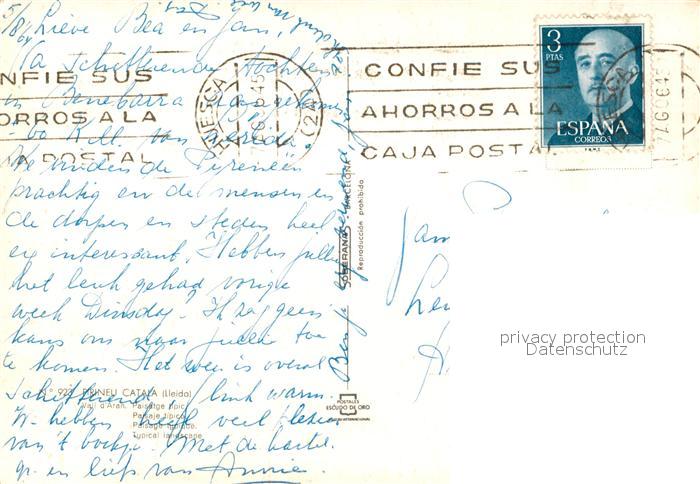 5/8/64
Lieve Bea en Jan,
Na Schitterende tochten
in Benabarra aangekomen
60 K.M. van Lerida.
We vinden de Pyreneën
prachtig en de mensen en
de dorpen en steden heel
erg interessant. Hebben jullie
het leuk gehad vorige
week Dinsdag? Ik zag geen
kans om naar jullie toe
te komen. Het weer is overal
schitterend / flink warm.
We hebben heel veel plezier
van 't boekje. Met de hartel.
gr. en liefs van Annie.
N.° 923 - PIRINEU CATALÀ (Lleida)
Vall d'Aran. Paisatge típic
Paisaje típico
Paysage typique
Typical landscape
NFIE SUS
HORROS A LA
A POSTAL
HUESCA
CONFIE SUS
AHORROS A LA
CAJA POSTAL
3
PTAS
ESPAÑA
CORREOS
F.N.M.T.
SOBERANAS BARCELONA
Reproducción prohibida
POSTALES
ESCUDO DE ORO
privacy protection
Datenschutz